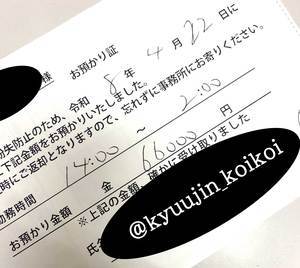 様 お預かり証
紛失防止のため、令和 8 年 4 月 22 日に
下記金額をお預かりいたしました。
時にご返却となりますので、忘れずに事務所にお寄りください。
勤務時間 14:00 ～ 2:00
お預かり金額 金 66000 円
※上記の金額、確かに受け取りました
氏名
@kyuujin_koikoi